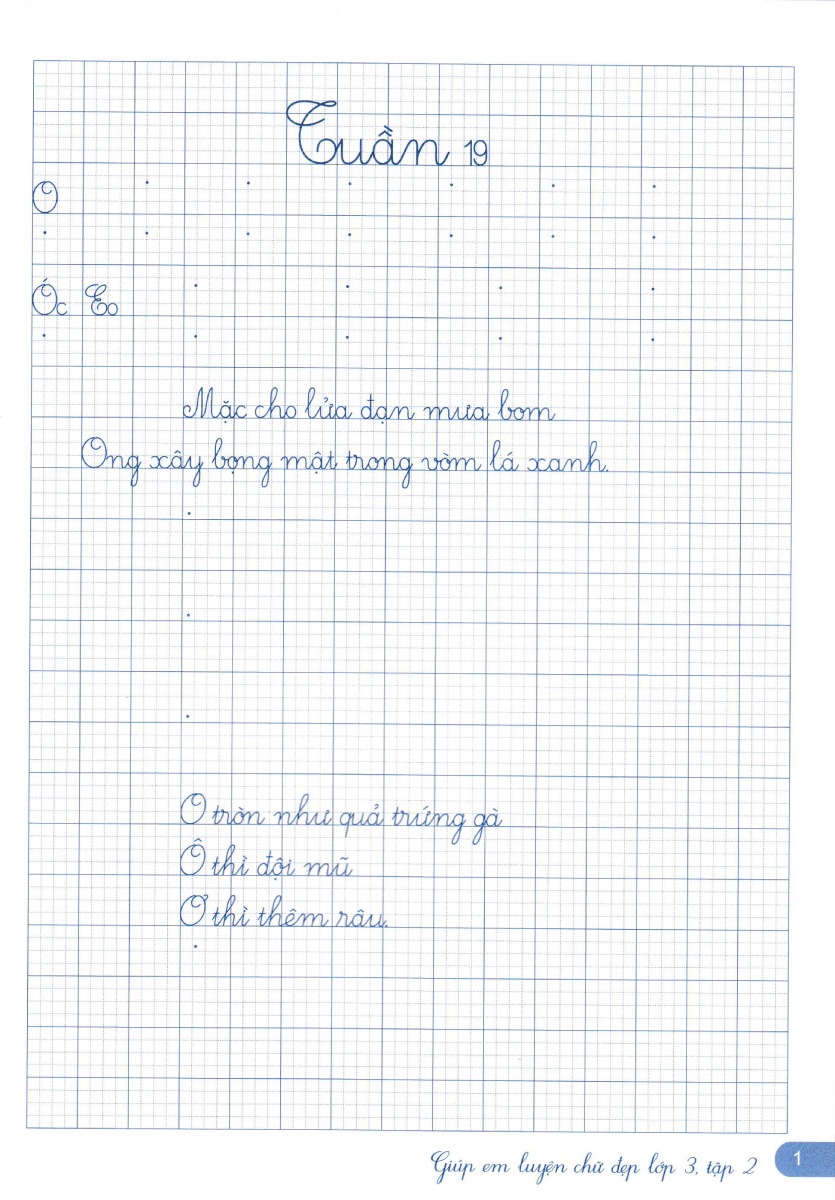 Tuần 19
O
Óc Eo
Mặc cho lửa đạn mưa bom
Ong xây bọng mật trong vòm lá xanh.
O tròn như quả trứng gà
Ô thì đội mũ
Ơ thì thêm râu.
Giúp em luyện chữ đẹp lớp 3, tập 2
1